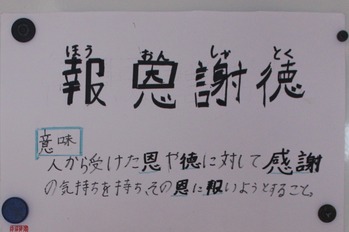 ほう おん しゃ とく
報恩謝徳
意味
人から受けた恩や徳に対して感謝
の気持ちを持ち、その恩に報いようとすること。